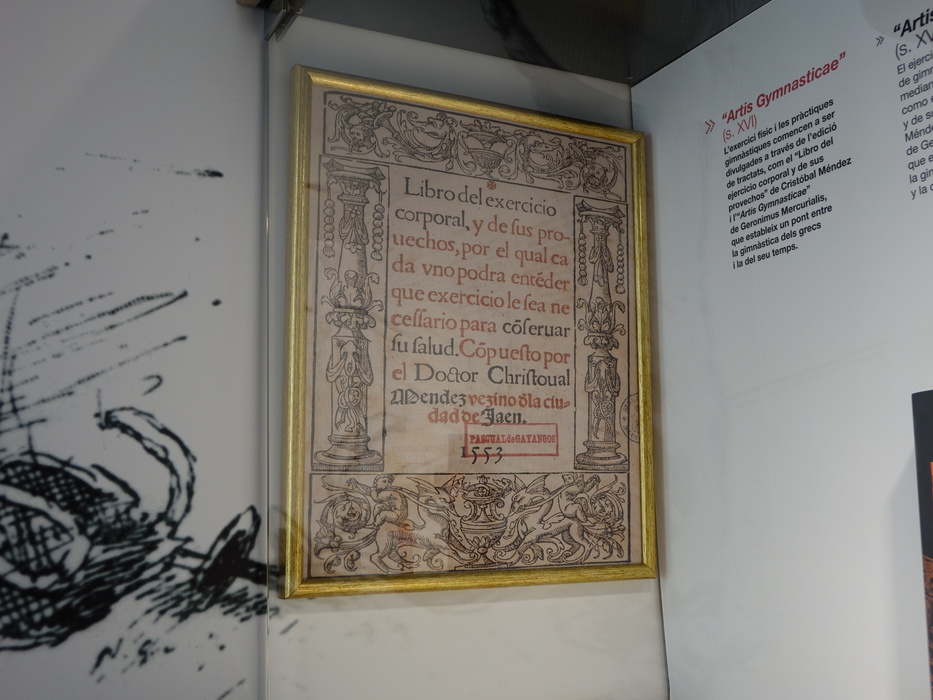 Libro del exercicio
corporal, y de ſus pro-
uechos, por el qual ca
da vno podra entẽder
que exercicio le ſea ne
ceſſario para cõſeruar
ſu ſalud. Cõpueſto por
el Doctor Chriſtoual
Mendez vezino dla ciu-
dad de Jaen.
PASCUAL de GAYANGOS
1553
N.S.
» “Artis Gymnasticae”
(s. XVI)
L'exercici físic i les pràctiques
gimnàstiques comencen a ser
divulgades a través de l'edició
de tractats, com el “Libro del
ejercicio corporal y de sus
provechos” de Cristóbal Méndez
i l'“Artis Gymnasticae”
de Geronimus Mercurialis,
que estableix un pont entre
la gimnàstica dels grecs
i la del seu temps.
» “Artis
(s. XV
El ejerci
de gimn
median
como e
y de su
Ménde
de Ge
que e
la gin
y la c